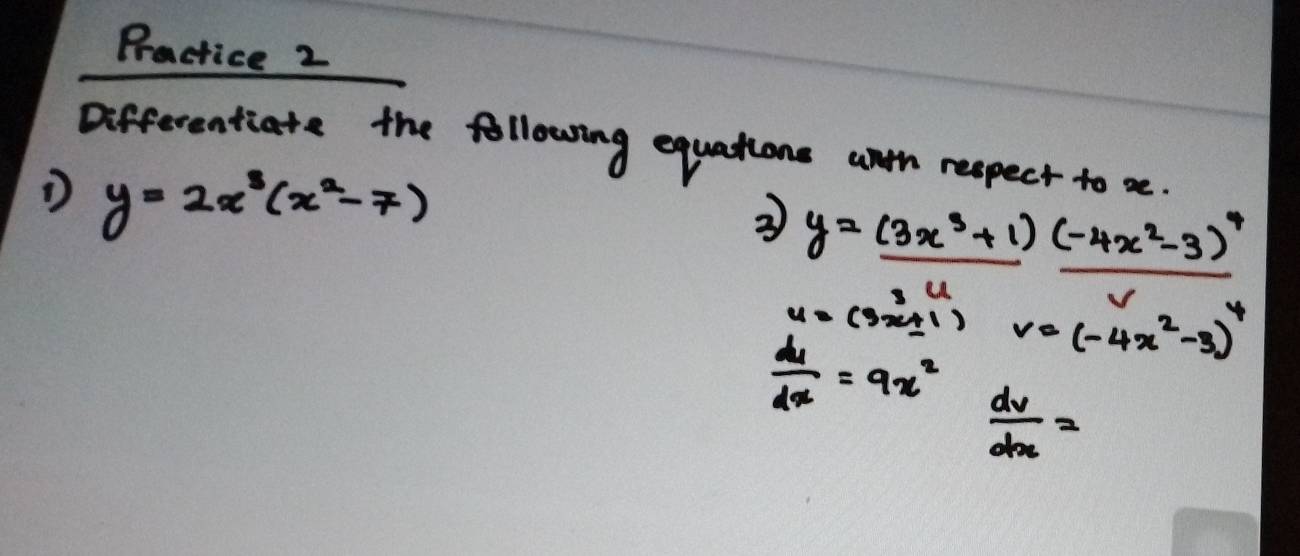 Practice 2
Differentiate the following equations with respect to x.
1) y = 2x³(x²-7)
2) y = (3x³+1)(-4x²-3)⁴
u v
u = (3x³+1) v = (-4x²-3)⁴
du/dx = 9x² dv/dx =